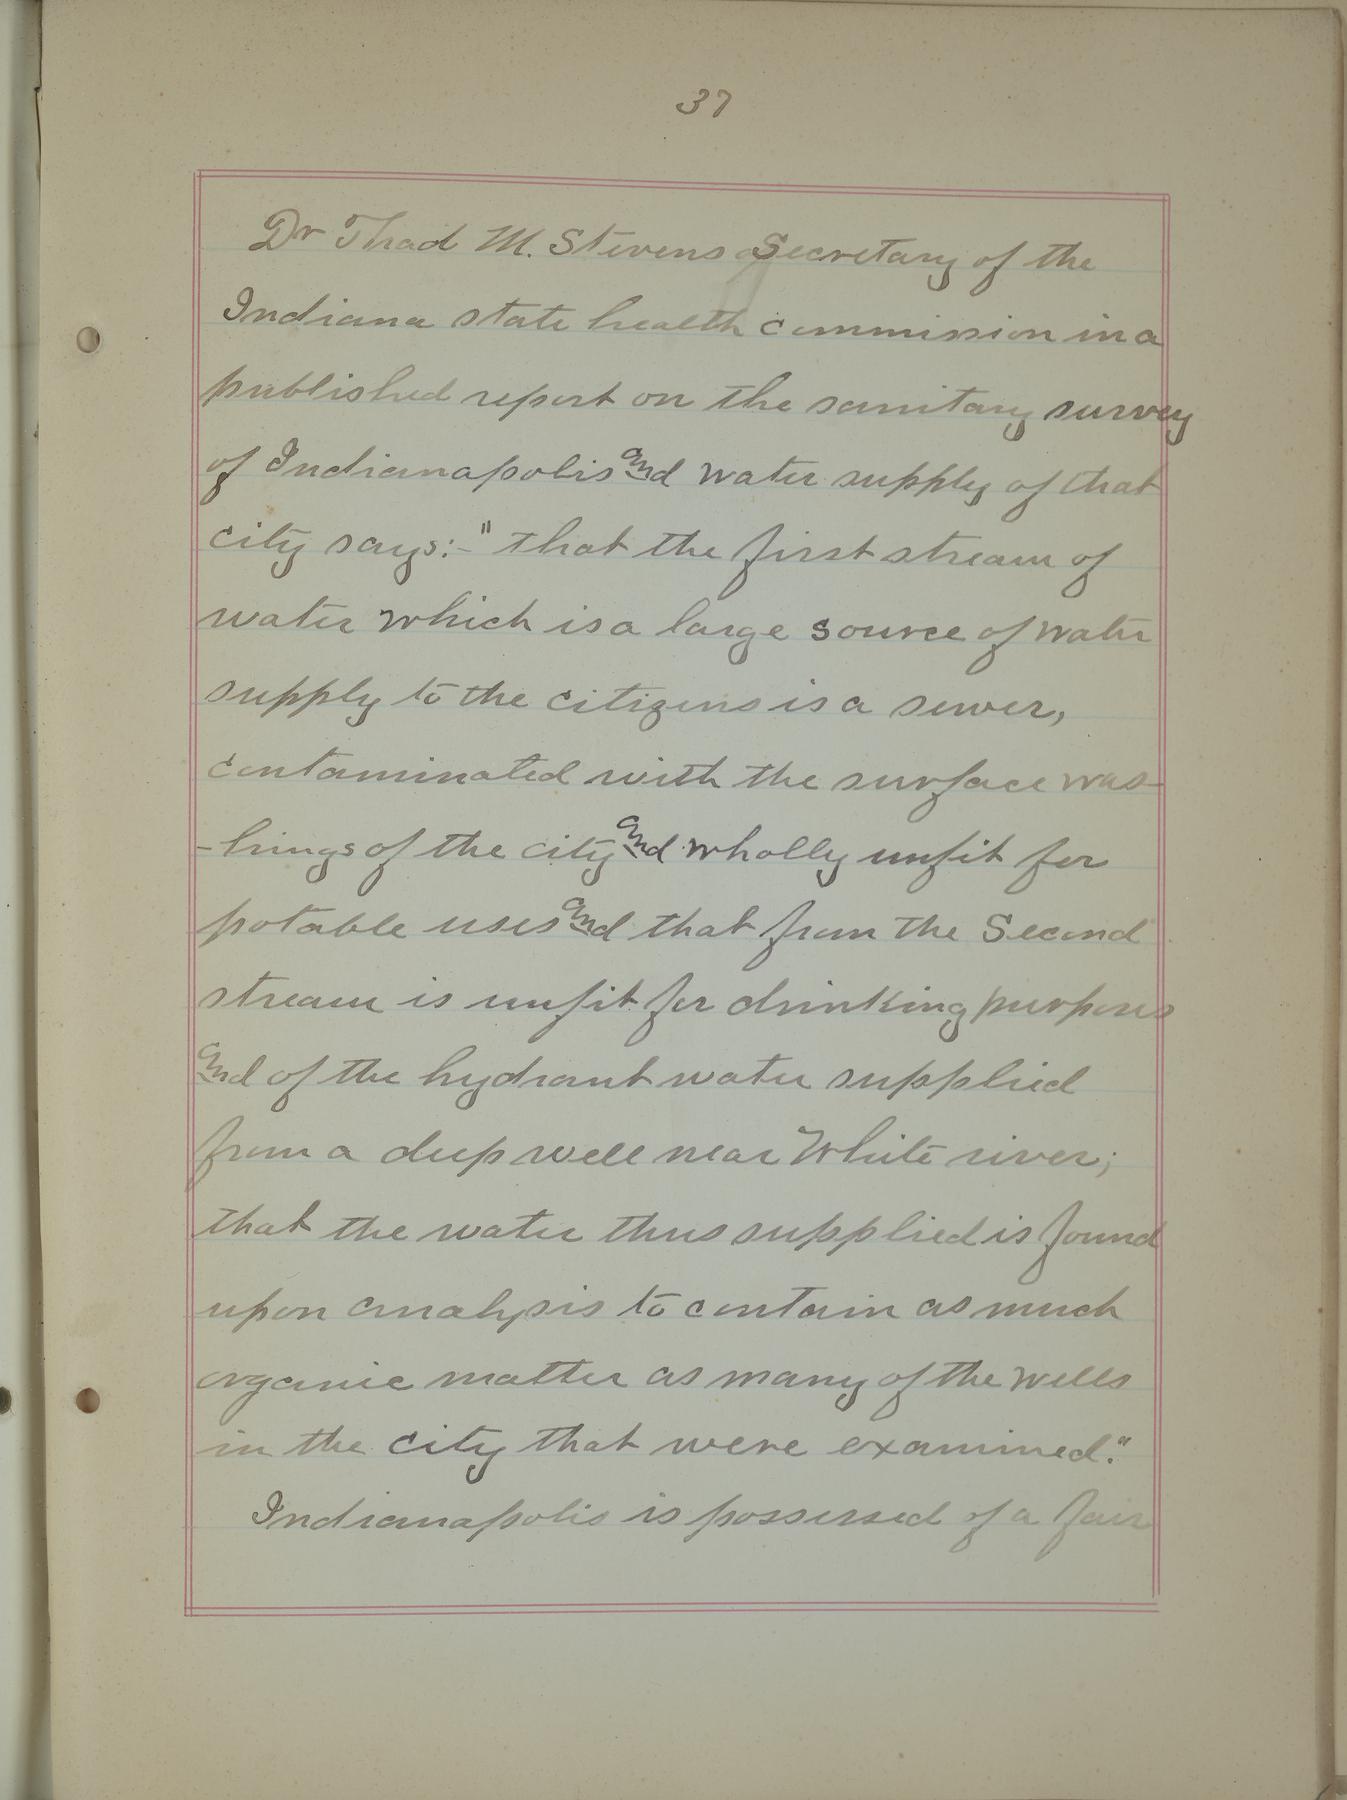 37
Dr Thad M. Stevens Secretary of the
Indiana state health commission in a
published report on the sanitary survey
of Indianapolis and water supply of that
city says:-" that the first stream of
water which is a large source of water
supply to the citizens is a sewer,
contaminated with the surface was-
-hings of the city and wholly unfit for
potable uses and that from the Second
stream is unfit for drinking purposes
and of the hydrant water supplied
from a deep well near White river;
that the water thus supplied is found
upon analysis to contain as much
organic matter as many of the wells
in the city that were examined."
Indianapolis is possessed of a fair